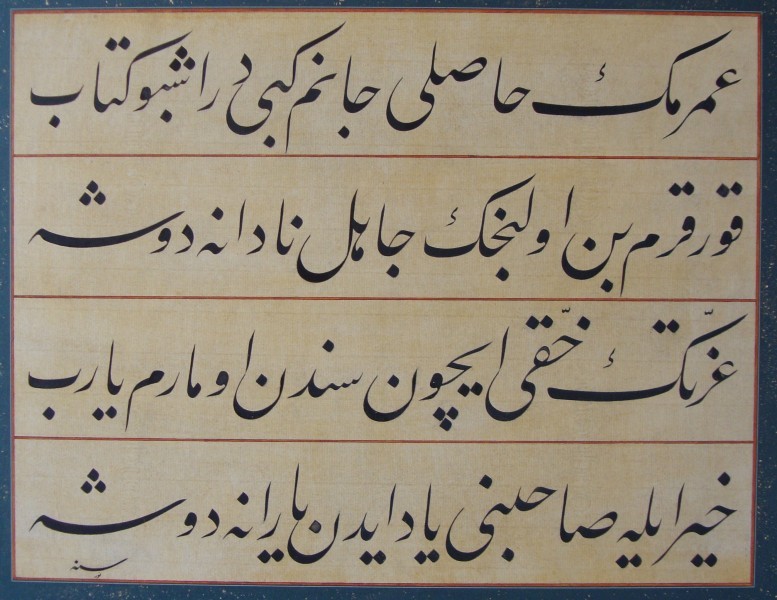 عمرمك حاصلى جانم كبى در اشبو كتاب
قورقرم بن اولنجك جاهل نادانه دوشه
عزّتك حقّى ايچون سندن اومارم يا رب
خير ايله صاحبنى ياد ايدن يارانه دوشه